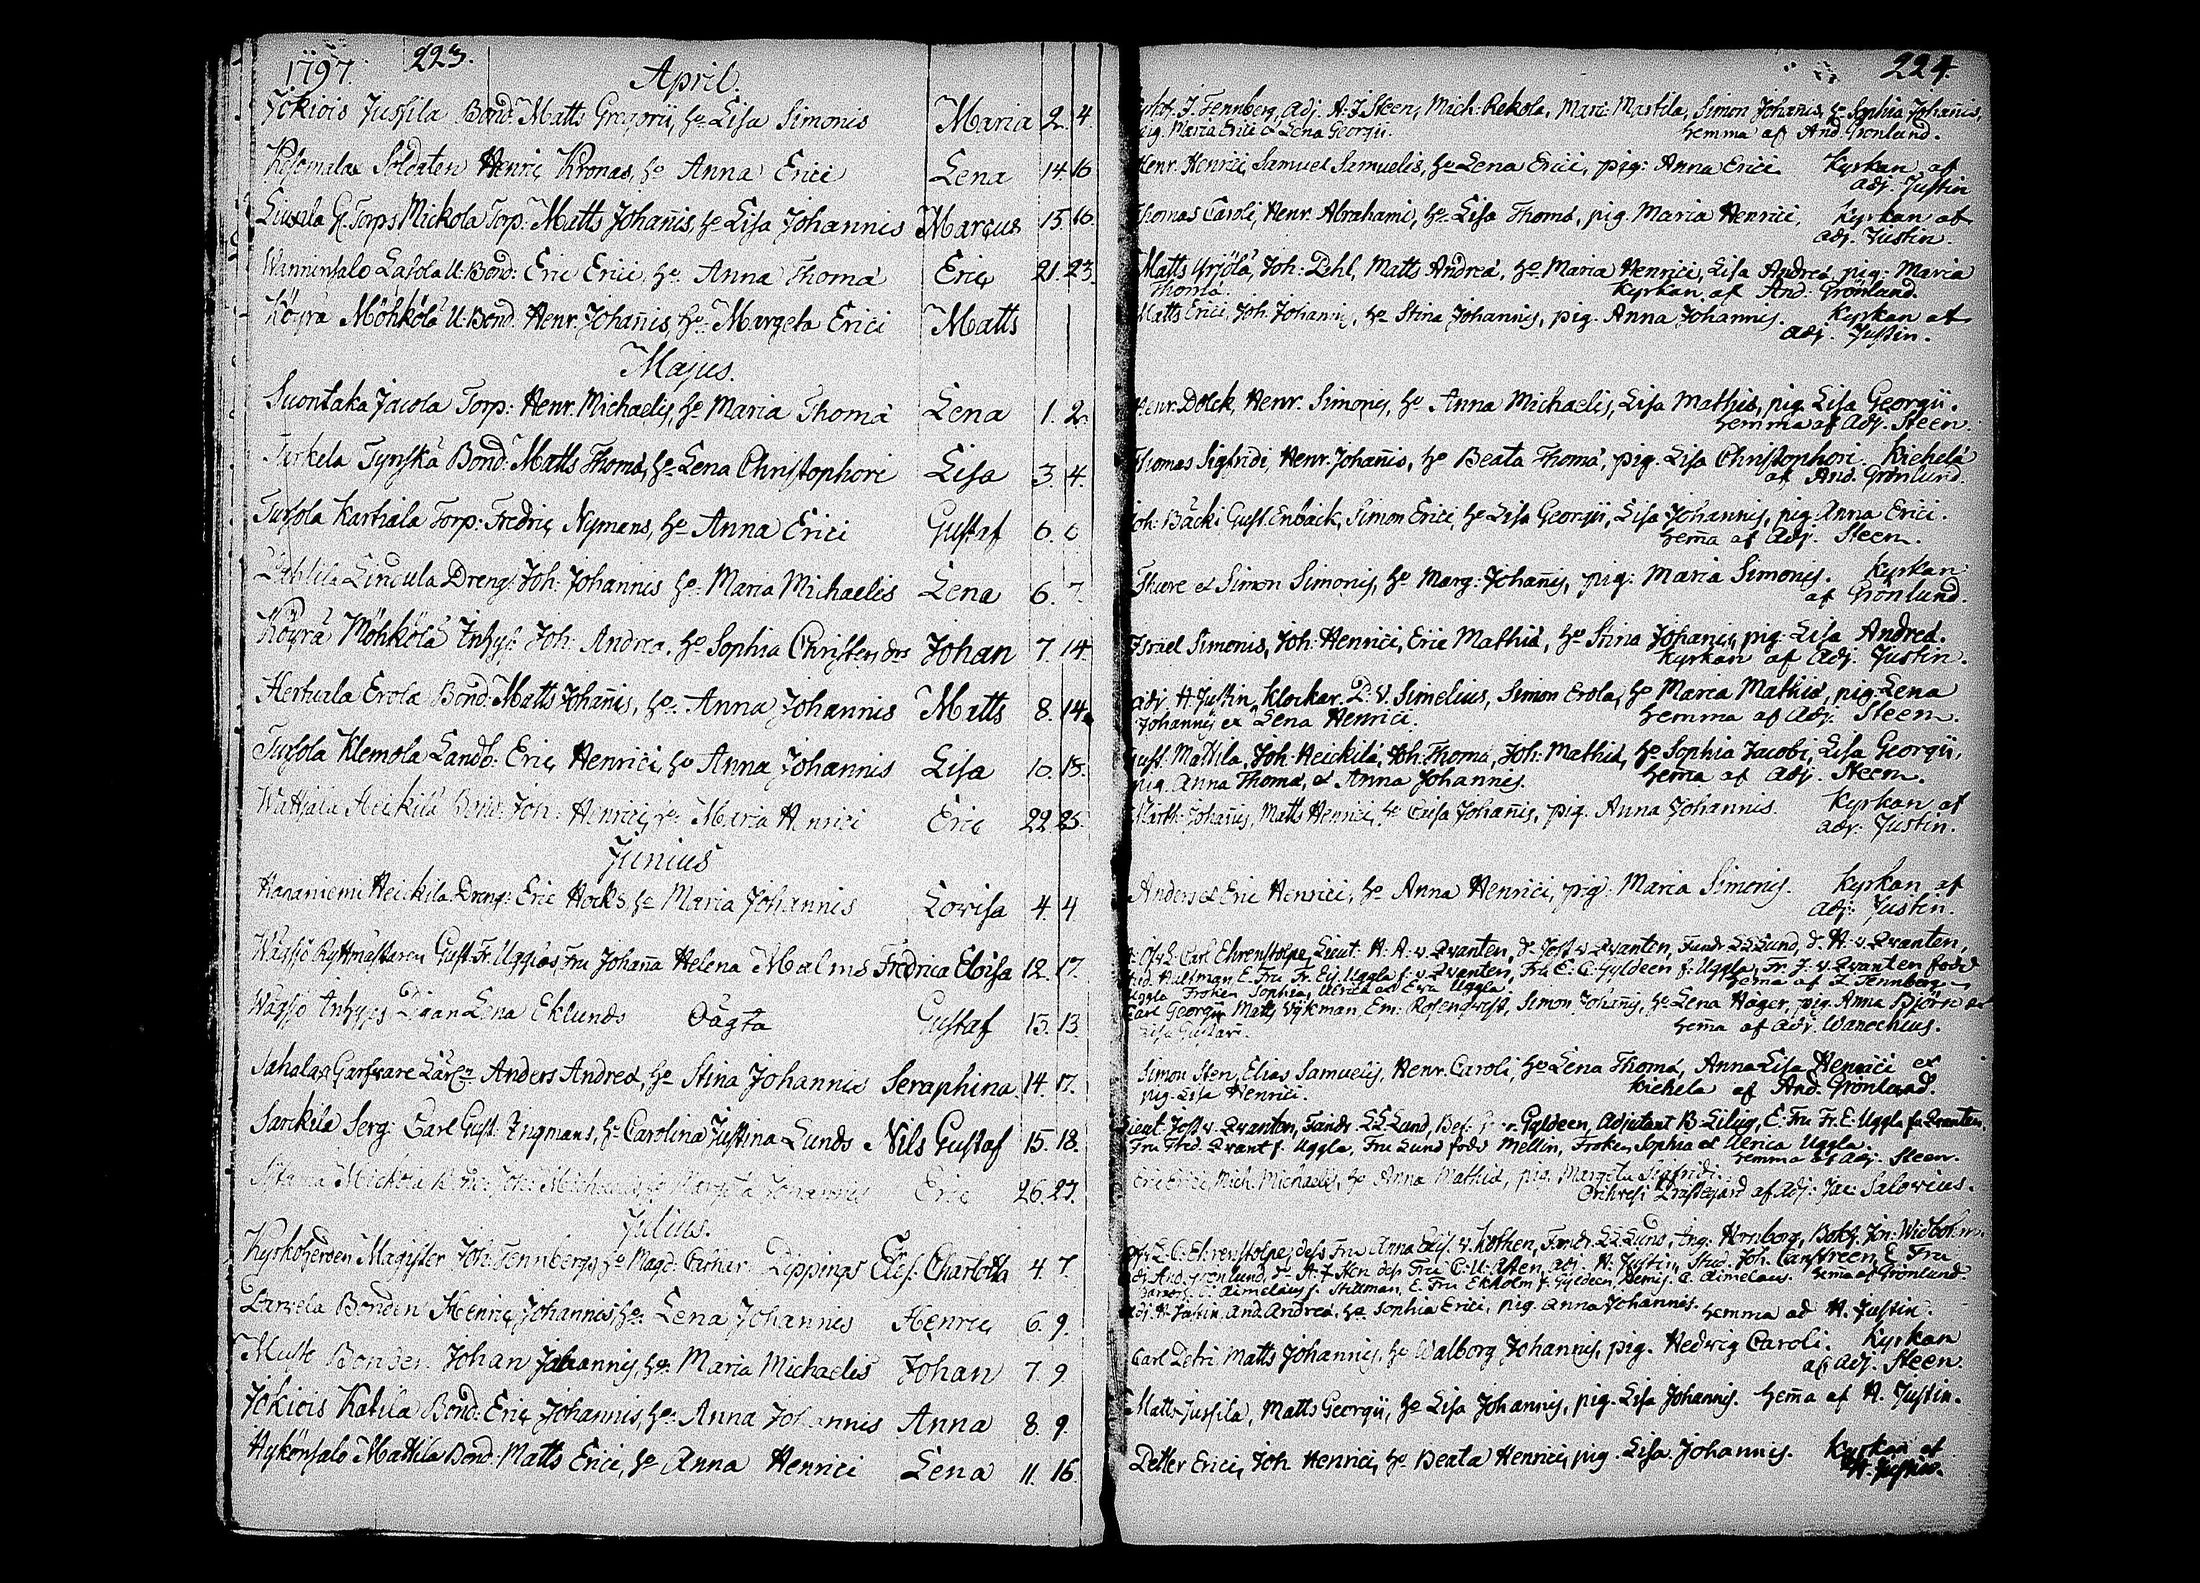 1797. 223.
April.
Jokiois Jussila Bond: Matts Gregorii, h:o Lisa Simonis Maria 2. 4.
Soldaten Henric Kronas, h:o Anna Erici Lena 14. 16
Liusala Torps Mickola Torp: Matts Johañis, h:o Lisa Johannis Marcus 15. 16.
Wanninsalo Lassola U: Bond: Eric Erici, h:o Anna Thomæ Eric 21. 23.
Köyrä Möhkölä U: Bond: Henr: Johañis, h:o Margeta Erici Matts
Majus.
Suontaka Jacola Torp: Henr: Michaelis, h:o Maria Thomæ Lena 1. 2.
Turkela Bond: Matts Thomæ, h:o Lena Christophori Lisa 3. 4.
Tursola Kartiala Torp: Fredric Nymans, h:o Anna Erici Gustaf 6.
Lincula Dreng: Joh: Johannis h:o Maria Michaelis Lena 6. 7.
Köyrä Möhkölä Inhys: Joh: Andreæ, h:o Sophia Christers drs Johan 7. 14.
Hertuala Erola Bond: Matts Johañis, h:o Anna Johannis Matts 8. 14.
Tursola Klemola Landb: Eric Henrici, h:o Anna Johannis Lisa 10. 15.
Heickilä Bond: Joh: Henrici, h:o Maria Henrici Eric 22. 25.
Junius
Kananiemi Heickilä Dreng: Eric Hocks, h:o Maria Johannis Lovisa 4. 4
Wågsjö Ryttmästaren Gust. Fr. Ugglas, Fru Johaña Helena Malms Fredrica Eloisa 12. 17.
Wågsjö Inhyses Pigan Lena Eklunds Oägta Gustaf 13. 13
Sahalax Garfvare Anders Andreæ, h:o Stina Johannis Seraphina 14. 17.
Sarckilä Serg: Carl Gust. Ingmans, h:o Carolina Justina Lunds Nils Gustaf 15. 18.
Mickola Bond: Joh: Michaelis, h:o Margeta Johannis Eric 26. 27.
Julius.
Kyrkoherden Magister Joh: Tennbergs, h:o Magd: Cathar: Lippings Elis: Charlotta 4. 7.
Parvela Bonden Henric Johannis, h:o Lena Johannis Henric 6. 9.
Bonden Johan Johannis, h:o Maria Michaelis Johan 7. 9
Jokiois Katila Bond: Eric Johannis, h:o Anna Johannis Anna 8. 9.
Hykönsalo Mattila Bond: Matts Erici, h:o Anna Henrici Lena 11. 16.
224.
J. Tennberg, Adj. A. J. Steen, Mich: Rekola, Marc: Martila, Simon Johañis, h:o Sophia Johañis,
pig. Maria Erici & Lena Georgii. hemma af And. Grönlund.
Henr. Henrici, Samuel Samuelis, h:o Lena Erici, pig: Anna Erici Kyrkan af
Adj. Justin
Thomas Caroli, Henr. Abrahami, h:o Lisa Thomæ, pig. Maria Henrici, Kyrkan af
adj. Justin.
Matts Yrjölä, Joh: Pehl, Matts Andreæ, h:o Maria Henrici, Lisa Andreæ, pig: Maria
Thomæ. Kyrkan af And: Grönlund.
Matts Erici, Joh. Johannis, h:o Stina Johannis, pig. Anna Johannis. Kyrkan af
adj. Justin.
Henr. Dolck, Henr. Simonis, h:o Anna Michaelis, Lisa Mathiæ, pig. Lisa Georgii.
hemma af Adj. Steen.
Thomas Sigfridi, Henr. Johañis, h:o Beata Thomæ, pig. Lisa Christophori. Kichelä
af And. Grönlund.
Joh: Bäcki Gust. Enbäck, Simon Erici, h:o Lisa Georgii, Lisa Johannis, pig. Anna Erici.
hem̃a af Adj. Steen.
Thure & Simon Simonis, h:o Marg: Johañis, pig: Maria Simonis. Kyrkan
af Grönlund.
Israel Simonis, Joh: Henrici, Eric Mathiæ, h:o Stina Johanis, pig. Lisa Andreæ.
Kyrkan af Adj. Justin.
Adj. H. Justin, Klockar. P. V. Simelius, Simon Erola, h:o Maria Mathiæ, pig. Lena
Johannis & Lena Henrici. hemma af Adj. Steen.
Gust. Mattila, Joh. Heickilä, Joh. Thomæ, Joh: Mathiæ, h:o Sophia Jacobi, Lisa Georgii,
pig. Anna Thomæ, & Anna Johannis. hem̃a af Adj. Steen.
Johañis, Matts Henrici, h:o Johañis, pig. Anna Johannis. Kyrkan af
adj. Justin.
Anders & Eric Henrici, h:o Anna Henrici, pig: Maria Simonis. Kyrkan af
Adj. Justin.
Carl Ehrenstolpe, Lieut: H. A. v. Qvanten, d. Jost v Qvanten, Fändr. Lund, d. H. v. Qvanten,
Hultman, E. Fru Fr. El. Uggla f. v. Qvanten, Fru E. C. Gyldeen f. Uggla, Fr. J. v. Qvanten född
Uggla Fröken Sophia, Ulrica & Eva Uggla. hem̃a af J Tennberg
Carl Georgii Matts Wykman, Em: Rosenqvist, Simon Johañis, h:o Lena Häger, pig. Anna Björn &
Lisa Gustavi. hem̃a af Adj. Wanochius.
Simon Sten, Elias Samuelis, Henr. Caroli, h:o Lena Thomæ, Anna Lisa Henrici et
pig. Lisa Henrici. Kichelä af And. Grönlund.
Lieut. Jost v. Qvanten, Fändr. Lund, Gyldeen, Adjutant B. Lilljg, E. Fru Fr. E. Uggla f. v Qvanten,
Fru Fred. Qvant f. Uggla, Fru Lund född Mellin, Fröken Sophia et Ulrica Uggla.
hemma af Adj. Steen.
Eric Erici, Mich. Michaelis, h:o Anna Mathiæ, pig. Margeta Sigfridi.
Orihvesi Prästegård af Adj. Jac: Salovius.
C. Ehrenstolpe, dess Fru Anna Elis. v. Köthen, Fändr. Lund, Ing. Hornborg, Bokh. Jon: Widbohm,
And. Grönlund, A. J. Sten dess Fru C. U. Sten, adj. H. Justin, Stud. Joh. E Fru
Aimelaus f. Stillman, E. Fru Ekholm f. Gyldeen, Aimelaus. hem̃a af Grönlund.
Adj. H. Justin, And. Andreæ, h:o Sophia Erici, pig. Anna Johannis. hemma ad H. Justin.
Carl Petri, Matts Johannis, h:o Walborg Johannis, pig. Hedwig Caroli. Kyrkan
af Adj. Steen.
Matts Jussila, Matts Georgii, h:o Lisa Johannis, pig. Lisa Johannis. hem̃a af H. Justin.
Petter Erici, Joh Henrici, h:o Beata Henrici, pig. Lisa Johannis. Kyrkan af
H. Justin.